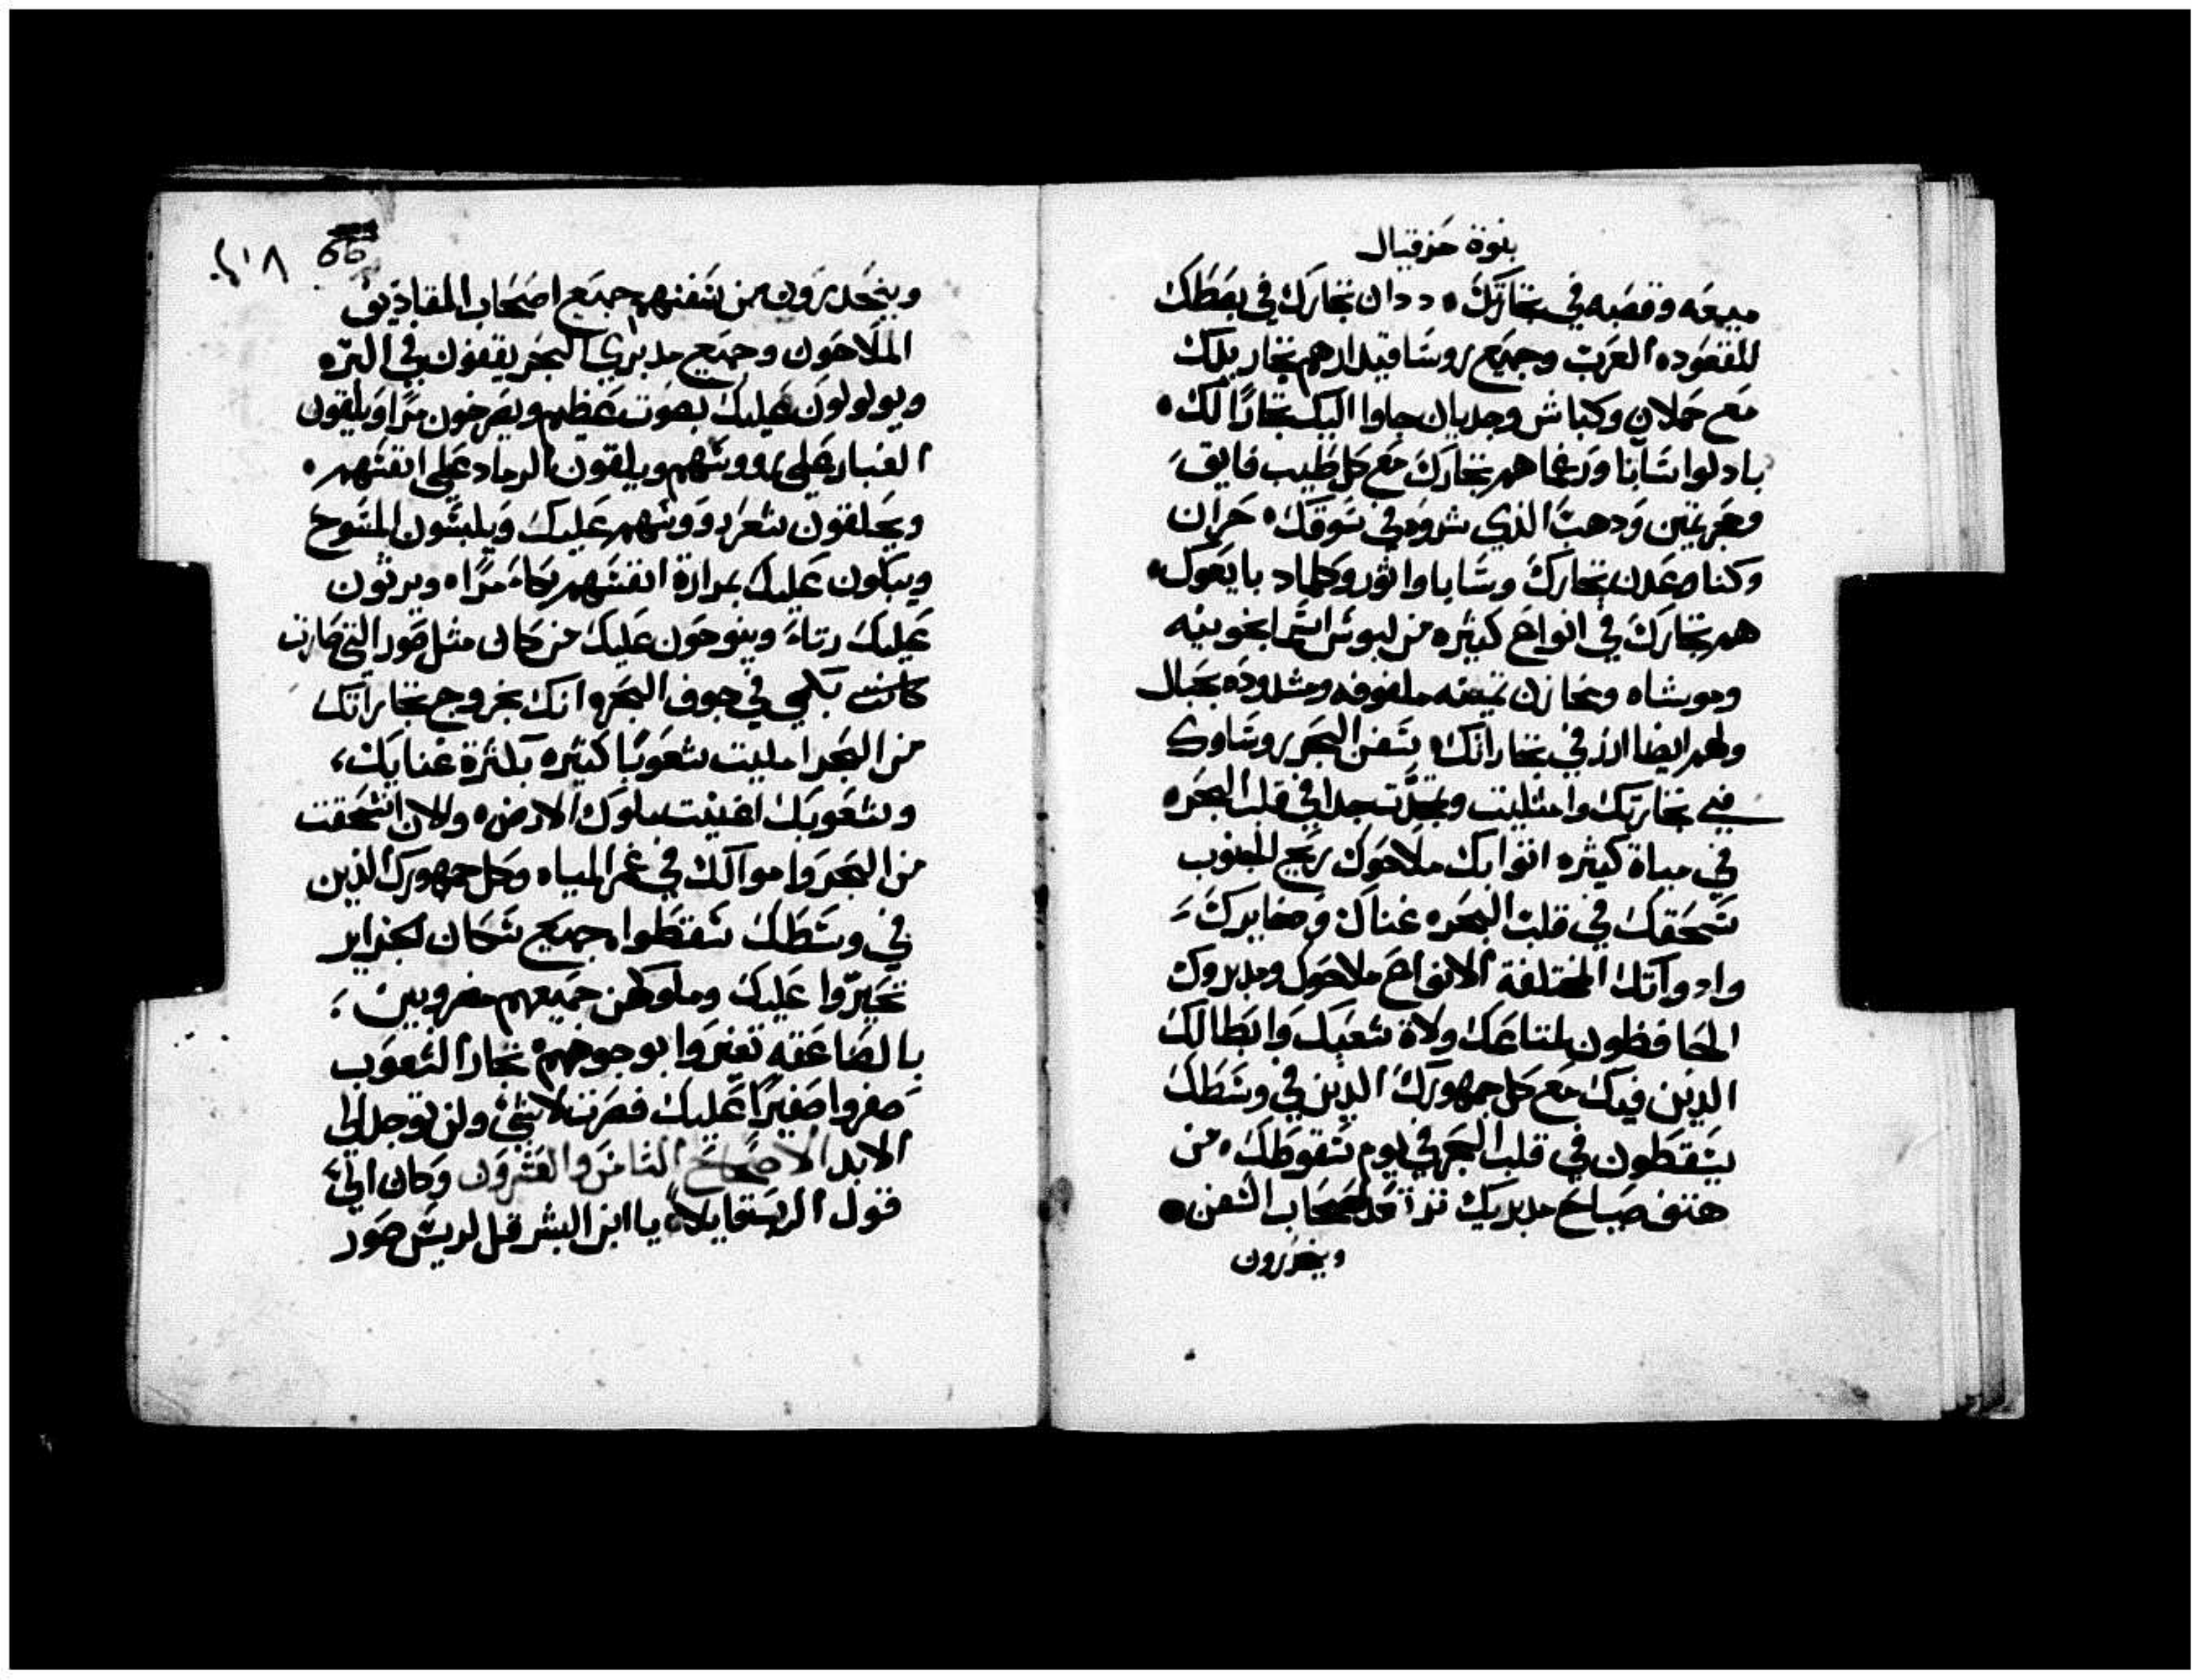 بنوة حزقيال
ميعه وقصبه في تجارتك ددان تجارك في بصطك
للقعوده العرب وجميع روسا قيدار هم تجار يدك
مع حملان وكباش وجديان جاوا اليك تجارًا لك
بادلوا سابا ورعما هم تجارك مع كل طيب فايق
وحجر ثمين ودهب الذي شروه في سوقك حران
وكنا وعدن تجارك وسابا واثور وكلماد بايعوك
هم تجارك في انواع كثيره من لبوس اسمانجونيه
وموشاه ومخازن ثمينه ملفوفه ومشدوده بحبال
ولهم ايضا ارز في تجاراتك سفن البحر روساوك
في تجارتك وامتليت وتمجدت جدا في قلب البحر
في مياة كثيره اتوا بك ملاحوك ريح الجنوب
سحقك في قلب البحر غناك وذخايرك
وادواتك المختلفة الانواع ملاحوك ومدبروك
الحافظون لمتاعك ولاة شعبك وابطالك
الذين فيك مع كل جمهورك الذين في وسطك
يسقطون في قلب البحر في يوم سقوطك من
هتف صياح مدبريك اصحاب السفن
وينحدرون
66
وينحدرون من سفنهم جميع اصحاب المقاديف
الملاحون وجميع مدبري البحر يقفون في البره
ويولولون عليك بصوت عظيم ويصرخون مرًا ويلقون
الغبار على رووسهم ويلقون الرماد على انفسهم
ويحلقون شعر رووسهم عليك ويلبسون المسوح
ويبكون عليك بمرارة انفسهم بكاء مرًا ويرثون
عليك رثاء وينوحون عليك من كان مثل صور التي صارت
كانت بكمي في جوف البحر وانك بخروج تجاراتك
من البحر امليت شعوبًا كثيره بكثرة غنايك
وشعوبك اغنيت ملوك الارض والان انسحقت
من البحر واموالك في غمر المياه وكل جمهورك الذين
في وسطك سقطوا جميع سكان الجزاير
تحيروا عليك وملوكهن جميعهم مضروبين
بالصاعقه تغيروا بوجوههم تجار الشعوب
صفروا صفيرًا عليك فصرت لا شي ولن توجد الى
الابد الاصحاح الثامن والعشرون وكان الي
قول الرب قايلا يا ابن البشر قل لريس صور